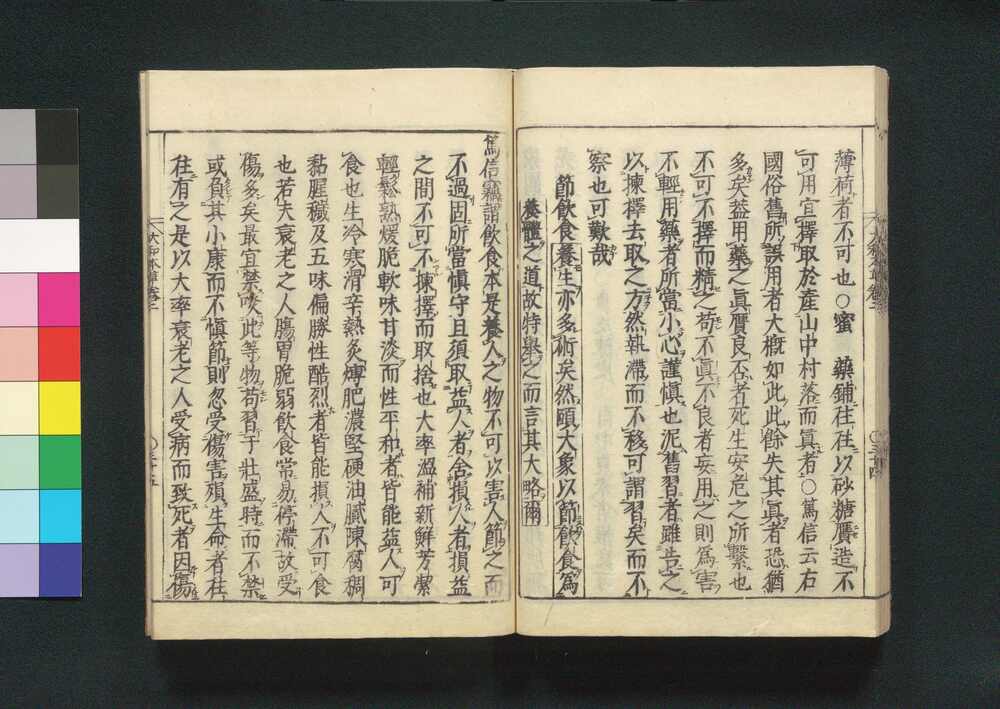 薄荷者不可也○蜜　藥鋪往往以砂糖贋造不
可用宜擇取於產山中村落而眞者○篤信云右
國俗舊所誤用者大概如此此餘失其眞者恐猶
多矣益用藥之眞贋良否者死生安危之所繫也
不可不擇而精之苟不眞不良者妄用之則爲害
不輕用藥者所當小心謹愼也泥舊習者雖告之
以揀擇去取之方然執滯而不移可謂習矣而不
察也可歎哉
節飲食養生亦多術矣然頤大象以節飲食爲
養體之道故特舉之而言其大略爾
篤信竊謂飲食本是養人之物不可以害人節之而
不過固所當愼守且須取益人者舍損人者損益
之間不可不揀擇而取捨也大率溫補新鮮芳潔
輕鬆熟煖脆軟味甘淡而性平和者皆能益人可
食也生冷寒滑辛熱炙煿肥濃堅硬油膩陳腐稠
黏腥穢及五味偏勝性酷烈者皆能損人不可食
也若夫衰老之人腸胃脆弱飲食常易停滯故受
傷多矣最宜禁啖此等物苟習于壯盛時而不禁
或負其小康而不愼節則忽受傷害殞生命者往
往有之是以大率衰老之人受病而致死者因傷
大和本草卷二
○三十四
大和本草卷二
○三十五